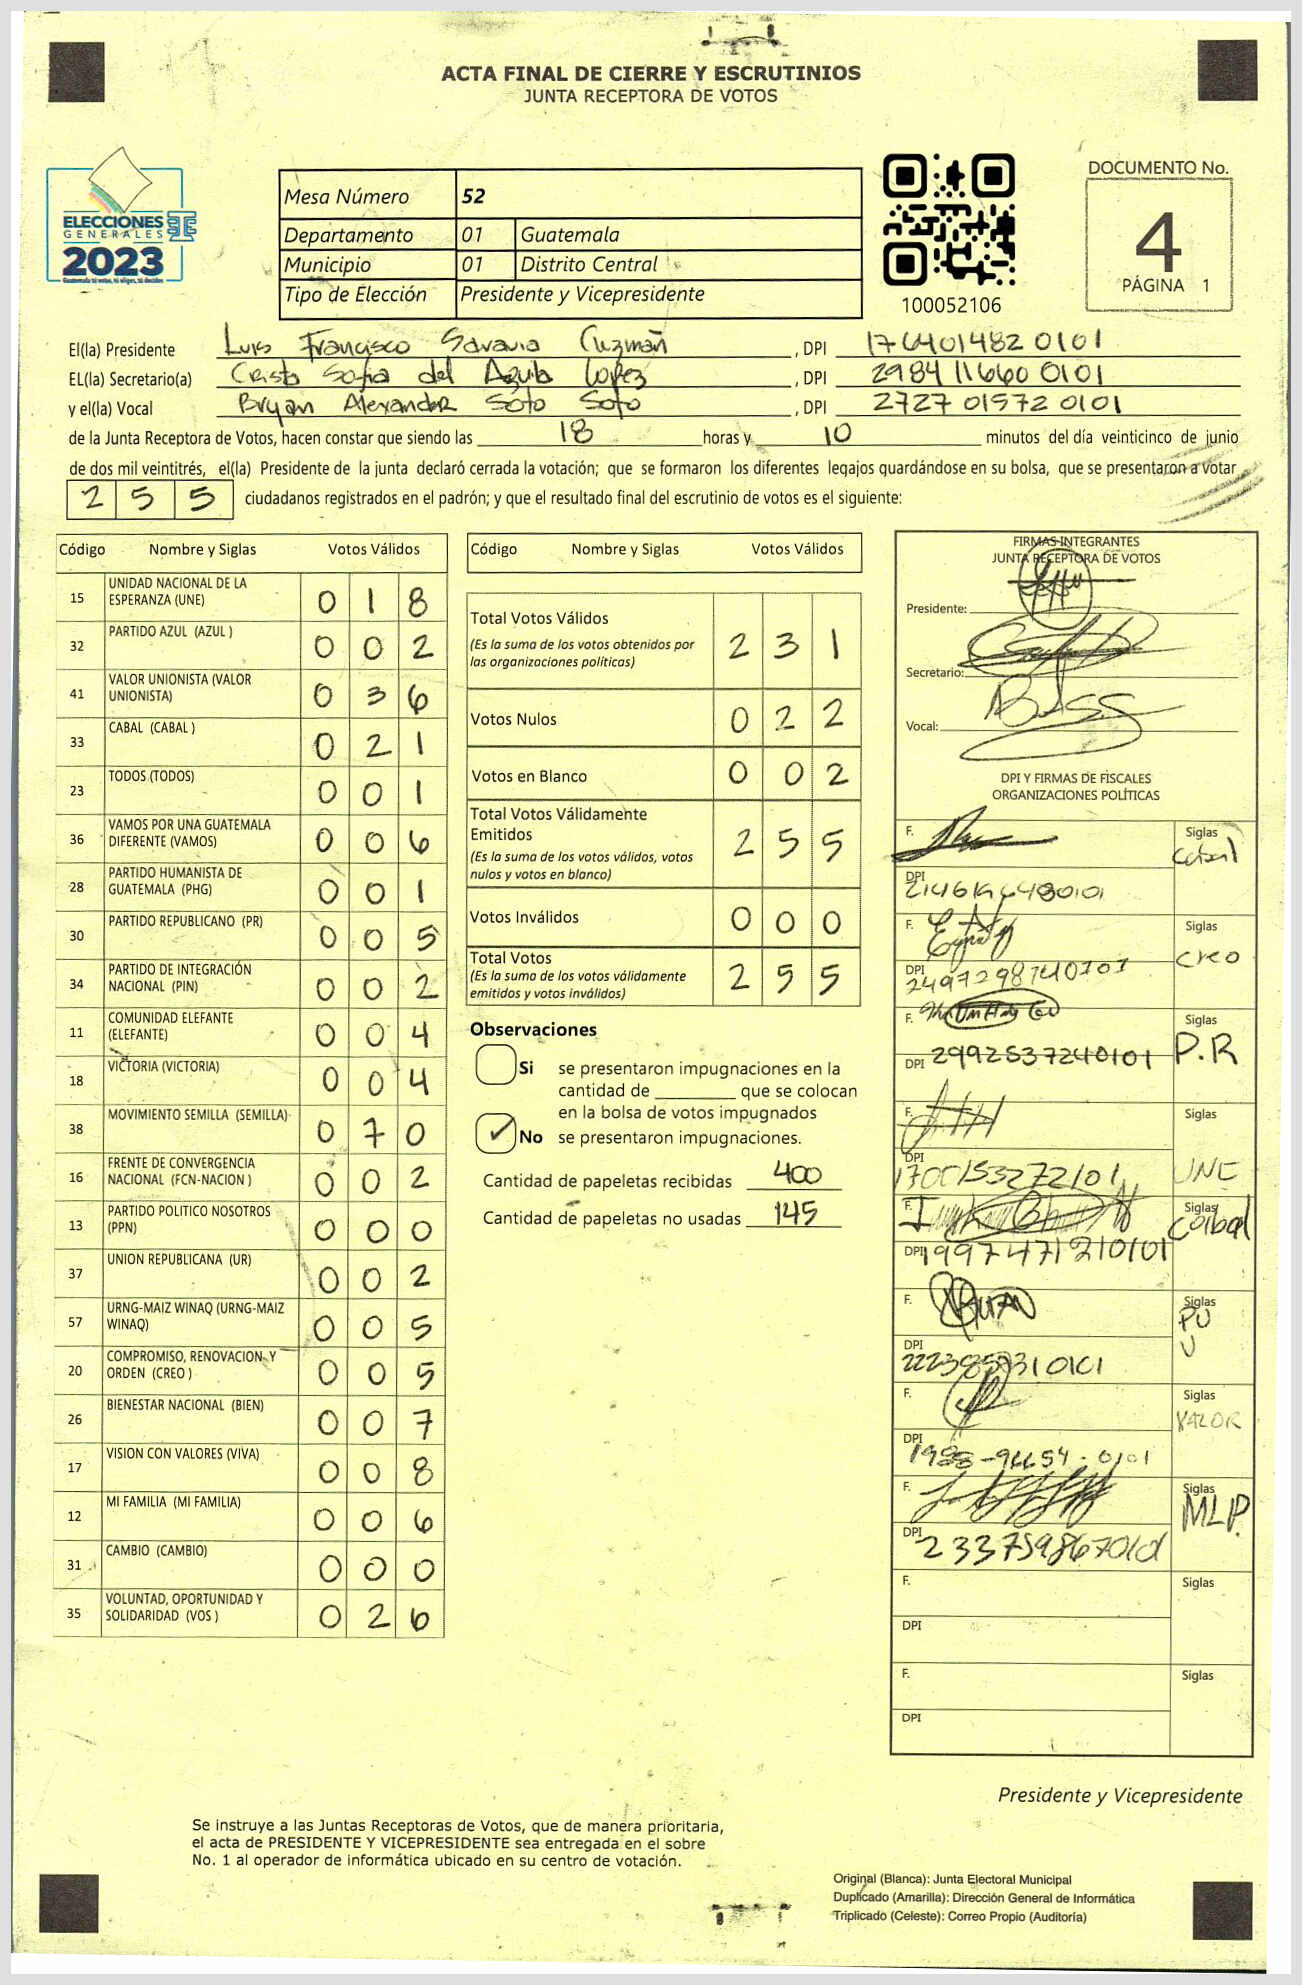 ACTA FINAL DE CIERRE Y ESCRUTINIOS
JUNTA RECEPTORA DE VOTOS
ELECCIONES
GENERALES
2023
Mesa Número 52
Departamento 01 Guatemala
Municipio 01 Distrito Central
Tipo de Elección Presidente y Vicepresidente
100052106
DOCUMENTO No.
4
PÁGINA 1
El(la) Presidente Luis Francisco Guzmán , DPI 176401482 0101
EL(la) Secretario(a) del Lopez , DPI 2984 11660 0101
y el(la) Vocal Bryan Alexander Soto Soto , DPI 2727 01572 0101
de la Junta Receptora de Votos, hacen constar que siendo las 18 horas y 10 minutos del día veinticinco de junio
de dos mil veintitrés, el(la) Presidente de la junta declaró cerrada la votación; que se formaron los diferentes legajos quardándose en su bolsa, que se presentaron a votar
255 ciudadanos registrados en el padrón; y que el resultado final del escrutinio de votos es el siguiente:
Código Nombre y Siglas Votos Válidos
15 UNIDAD NACIONAL DE LA ESPERANZA (UNE) 0 1 8
32 PARTIDO AZUL (AZUL ) 0 0 2
41 VALOR UNIONISTA (VALOR UNIONISTA) 0 3 6
33 CABAL (CABAL ) 0 2 1
23 TODOS (TODOS) 0 0 1
36 VAMOS POR UNA GUATEMALA DIFERENTE (VAMOS) 0 0 6
28 PARTIDO HUMANISTA DE GUATEMALA (PHG) 0 0 1
30 PARTIDO REPUBLICANO (PR) 0 0 5
34 PARTIDO DE INTEGRACIÓN NACIONAL (PIN) 0 0 2
11 COMUNIDAD ELEFANTE (ELEFANTE) 0 0 4
18 VICTORIA (VICTORIA) 0 0 4
38 MOVIMIENTO SEMILLA (SEMILLA) 0 7 0
16 FRENTE DE CONVERGENCIA NACIONAL (FCN-NACION ) 0 0 2
13 PARTIDO POLITICO NOSOTROS (PPN) 0 0 0
37 UNION REPUBLICANA (UR) 0 0 2
57 URNG-MAIZ WINAQ (URNG-MAIZ WINAQ) 0 0 5
20 COMPROMISO, RENOVACION Y ORDEN (CREO ) 0 0 5
26 BIENESTAR NACIONAL (BIEN) 0 0 7
17 VISION CON VALORES (VIVA) 0 0 8
12 MI FAMILIA (MI FAMILIA) 0 0 6
31 CAMBIO (CAMBIO) 0 0 0
35 VOLUNTAD, OPORTUNIDAD Y SOLIDARIDAD (VOS ) 0 2 6
Código Nombre y Siglas Votos Válidos
Total Votos Válidos 2 3 1
(Es la suma de los votos obtenidos por
las organizaciones políticas)
Votos Nulos 0 2 2
Votos en Blanco 0 0 2
Total Votos Válidamente
Emitidos 2 5 5
(Es la suma de los votos válidos, votos
nulos y votos en blanco)
Votos Inválidos 0 0 0
Total Votos 2 5 5
(Es la suma de los votos válidamente
emitidos y votos inválidos)
Observaciones
Si se presentaron impugnaciones en la
cantidad de ________ que se colocan
en la bolsa de votos impugnados
✓ No se presentaron impugnaciones.
Cantidad de papeletas recibidas 400
Cantidad de papeletas no usadas 145
FIRMAS INTEGRANTES
JUNTA RECEPTORA DE VOTOS
Presidente:
Secretario:
Vocal:
DPI Y FIRMAS DE FISCALES
ORGANIZACIONES POLÍTICAS
F. Siglas Cabal
DPI
F. Siglas Creo
DPI
F. Siglas P.R
DPI 2992537240101
F. Siglas UNE
DPI 1700153272101
F. Siglas Cabal
DPI 1997471210101
F. Siglas PU
U
DPI
F. Siglas VALOR
DPI
F. Siglas MLP.
DPI
F. Siglas
DPI
F. Siglas
DPI
Presidente y Vicepresidente
Se instruye a las Juntas Receptoras de Votos, que de manera prioritaria,
el acta de PRESIDENTE Y VICEPRESIDENTE sea entregada en el sobre
No. 1 al operador de informática ubicado en su centro de votación.
Original (Blanca): Junta Electoral Municipal
Duplicado (Amarilla): Dirección General de Informática
Triplicado (Celeste): Correo Propio (Auditoría)